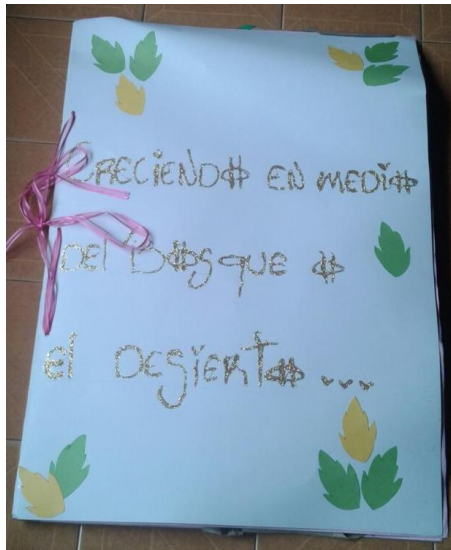 CRECIENDO EN MEDIO
DEl bOsque O
el DesierTO...